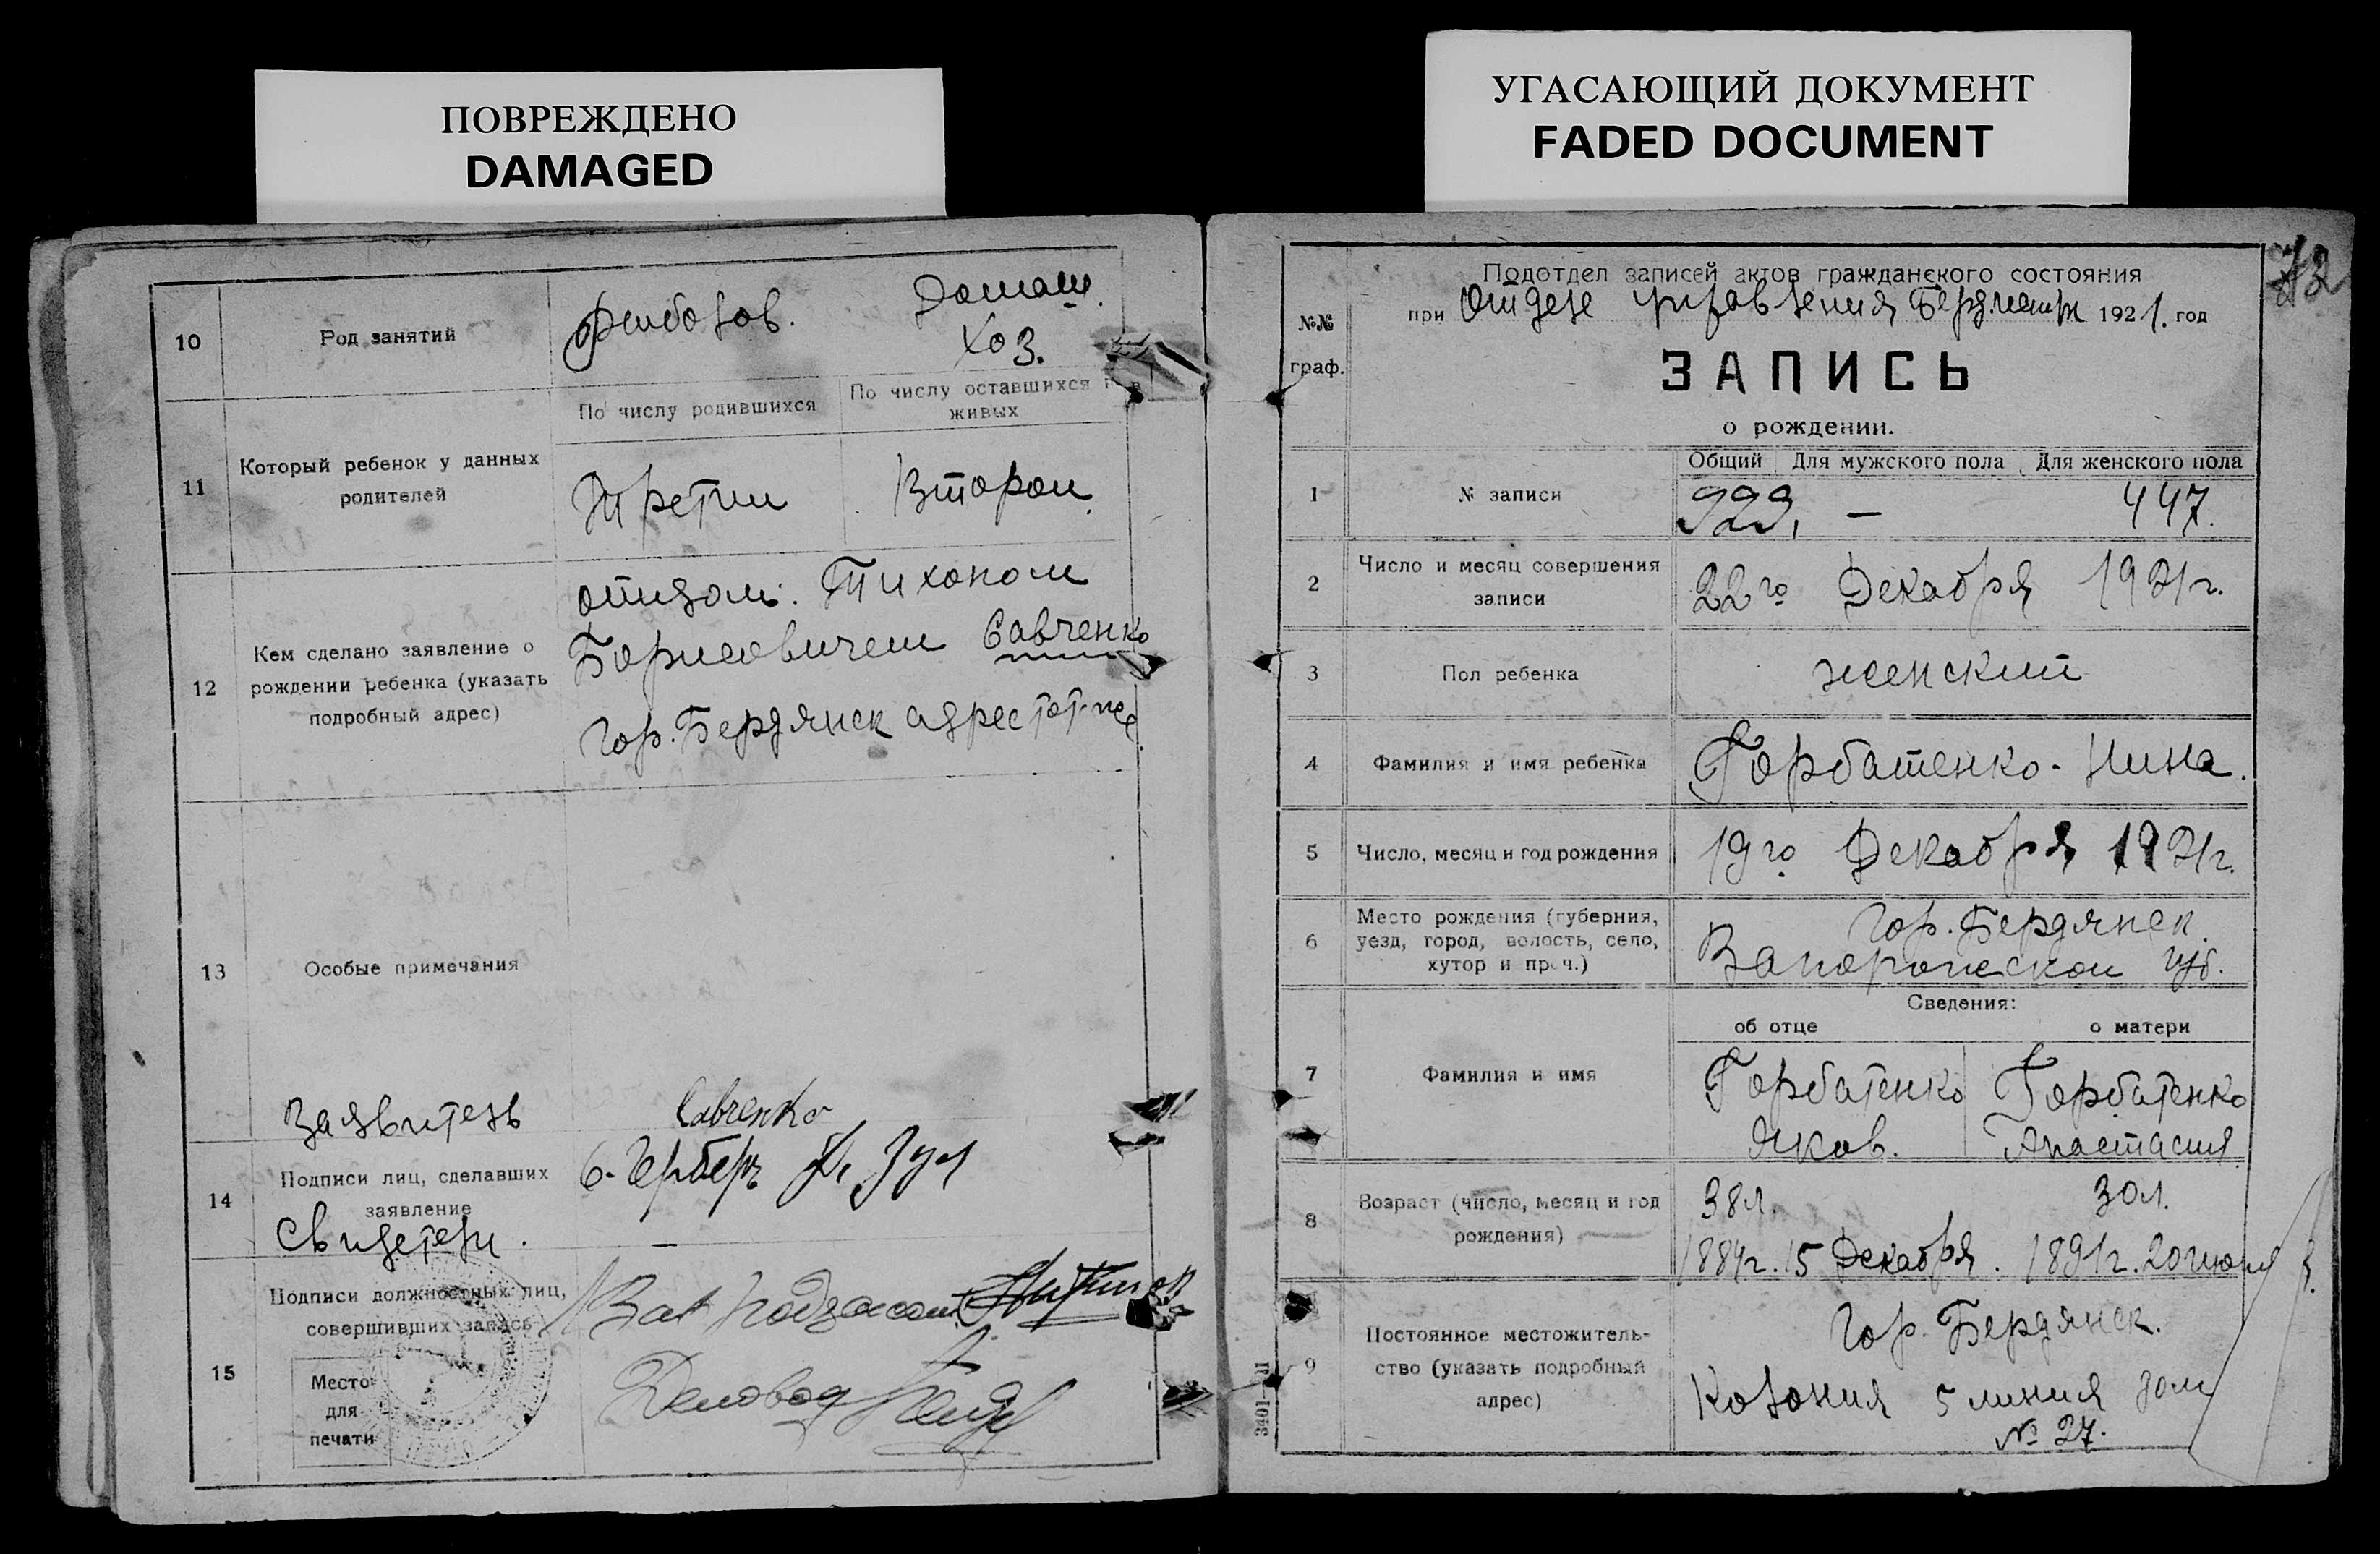 ПОВРЕЖДЕНО
DAMAGED
УГАСАЮЩИЙ ДОКУМЕНТ
FADED DOCUMENT
10
Род занятий
рыболов.
Домаш.
хоз.
11
Который ребенок у данных
родителей
По числу родившихся
По числу оставшихся в
живых
Третий
Второй
12
Кем сделано заявление о
рождении ребенка (указать
подробный адрес)
отцом: Тихоном
Борисовичем Савченко
гор. Бердянск адрес тот-же
13
Особые примечания
Заявитель
Савченко
14
Подписи лиц, сделавших
заявление
Свидетели.
15
Подписи должностных лиц,
совершивших запись
Место
для
печати
Зав
Деловод
72
№№
граф.
Подотдел записей актов гражданского состояния
при Отделе управления 1921. год
ЗАПИСЬ
о рождении.
1
№ записи
Общий Для мужского пола Для женского пола
999, — 447.
2
Число и месяц совершения
записи
22го Декабря 1921г.
3
Пол ребенка
женский
4
Фамилия и имя ребенка
Горбатенко - Нина.
5
Число, месяц и год рождения
19го Декабря 1921г.
6
Место рождения (губерния,
уезд, город, волость, село,
хутор и проч.)
Гор. Бердянск
Запорожской губ.
Сведения:
об отце
о матери
7
Фамилия и имя
Горбатенко
Яков.
Горбатенко
Анастасия
8
Возраст (число, месяц и год
рождения)
38л.
1884г. 15 Декабря.
30л.
1891г. 20 июня
9
Постоянное местожитель-
ство (указать подробный
адрес)
Гор. Бердянск.
Колония 5 линия дом
№ 27.
3401—П